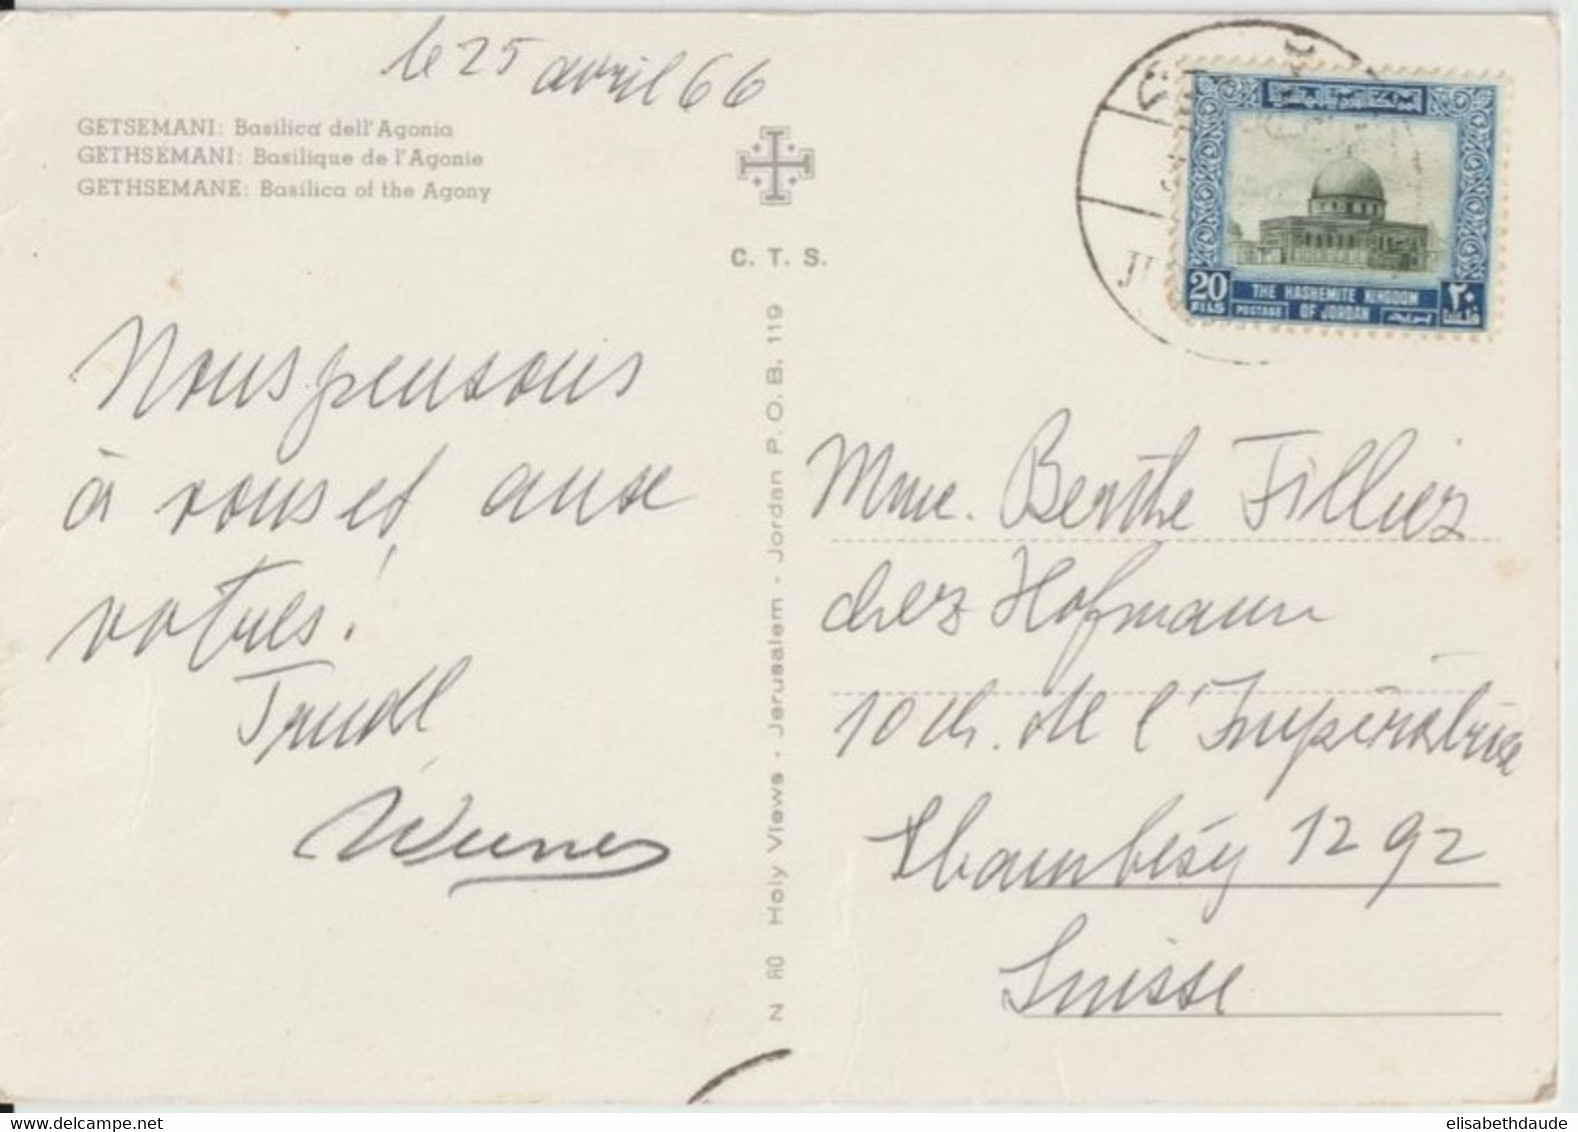 le 25 avril 66
GETSEMANI: Basilica dell'Agonia
GETHSEMANI: Basilique de l'Agonie
GETHSEMANE: Basilica of the Agony
C. T. S.
Nous pensons
à vous et aux
votres!
Trudl
Werner
N 80 Holy Views - Jerusalem - Jordan P. O. B. 119
20
FILS
THE HASHEMITE KINGDOM
OF JORDAN
POSTAGE
٢٠
فلسا
بريد
Mme. Berthe Filliez
chez Hofmann
10 ch. de l'Impératrice
Chambésy 1292
Suisse
elisabethdaude